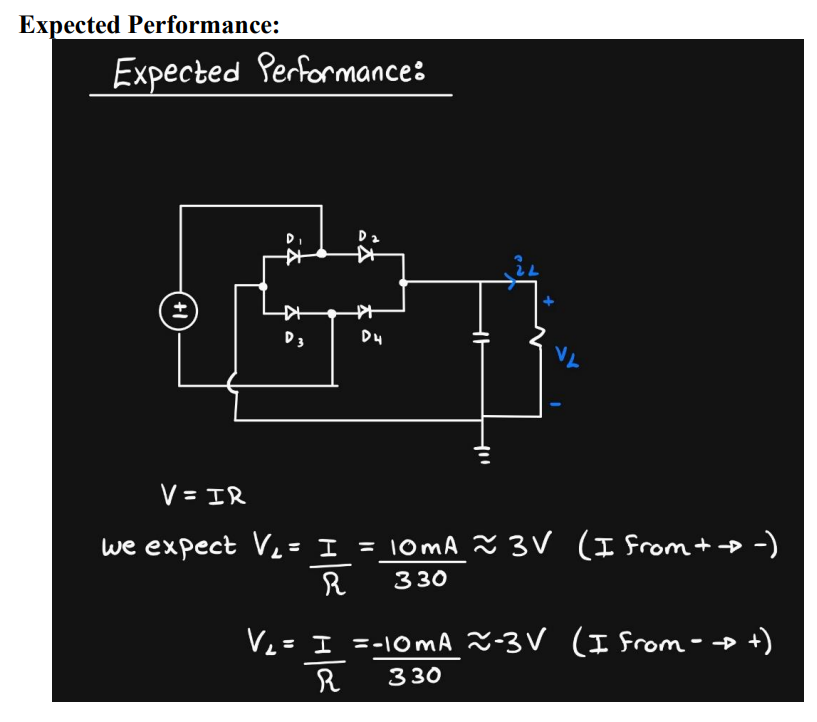 Expected Performance:
Expected Performance:
D1 D2
îL
+
±
D3 D4
VL
-
V = IR
we expect VL = I/R = 10mA/330 ≈ 3V (I from + → -)
VL = I/R = -10mA/330 ≈ -3V (I from - → +)